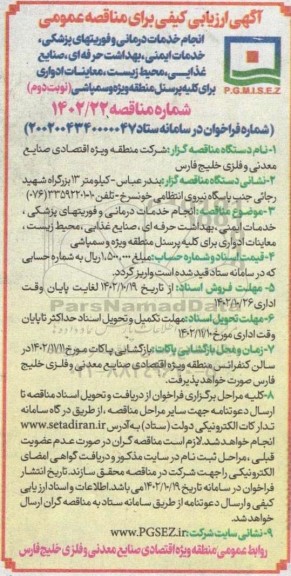 آگهی ارزیابی کیفی برای مناقصه عمومی
انجام خدمات درمانی و فوریتهای پزشکی،
خدمات ایمنی، بهداشت حرفه ای، صنایع
غذایی، محیط زیست، معاینات ادواری
برای کلیه پرسنل منطقه ویژه و سمپاشی (نوبت دوم)
P.G.M.I.S.E.Z
شماره مناقصه: ۱۴۰۲/۲۲
(شماره فراخوان در سامانه ستاد ۲۰۰۲۰۰۴۳۴۰۰۰۰۰۴۷)
۱-نام دستگاه مناقصه گزار: شرکت منطقه ویژه اقتصادی صنایع
معدنی و فلزی خلیج فارس
۲-نشانی دستگاه مناقصه گزار: بندر عباس-کیلومتر ۱۳ بزرگراه شهید
رجائی جنب پاسگاه نیروی انتظامی خونسرخ-تلفن
۳-موضوع مناقصه: انجام خدمات درمانی و فوریتهای پزشکی،
خدمات ایمنی، بهداشت حرفه ای، صنایع غذایی، محیط زیست،
معاینات ادواری برای کلیه پرسنل منطقه ویژه و سمپاشی
۴-قیمت اسناد و شماره حساب: مبلغ ۱،۵۰۰،۰۰۰ ریال به شماره حسابی
که در سامانه ستاد قید شده است واریز گردد.
۵- مهلت فروش اسناد: از تاریخ ۱۴۰۲/۱۰/۱۹ لغایت پایان وقت
اداری ۱۴۰۲/۱۰/۲۶
۶-مهلت تحویل اسناد: مهلت تکمیل و تحویل اسناد حداکثر تا پایان
وقت اداری مورخ ۱۴۰۲/۱۱/۱۰
۷-زمان و محل بازگشایی پاکات: بازگشایی پاکات مورخ ۱۴۰۲/۱۱/۱۱ در
سالن کنفرانس منطقه ویژه اقتصادی صنایع معدنی و فلزی خلیج
فارس صورت خواهد پذیرفت.
۸-کلیه مراحل برگزاری فراخوان از دریافت و تحویل اسناد مناقصه تا
ارسال دعوتنامه جهت سایر مراحل مناقصه، از طریق درگاه سامانه
تدارکات الکترونیکی دولت (ستاد) به آدرس www.setadiran.ir
انجام خواهد شد. لازم است مناقصه گران در صورت عدم عضویت
قبلی، مراحل ثبت نام در سایت مذکور و دریافت گواهی امضای
الکترونیکی را جهت شرکت در مناقصه محقق سازند. تاریخ انتشار
فراخوان در سامانه تاریخ ۱۴۰۲/۱۰/۱۹ می باشد. اطلاعات و اسناد ارزیابی
کیفی و ارسال دعوتنامه از طریق سامانه ستاد به مناقصه گران ارسال
خواهد شد.
۹- نشانی سایت شرکت: www.PGSEZ.ir
روابط عمومی منطقه ویژه اقتصادی صنایع معدنی و فلزی خلیج فارس